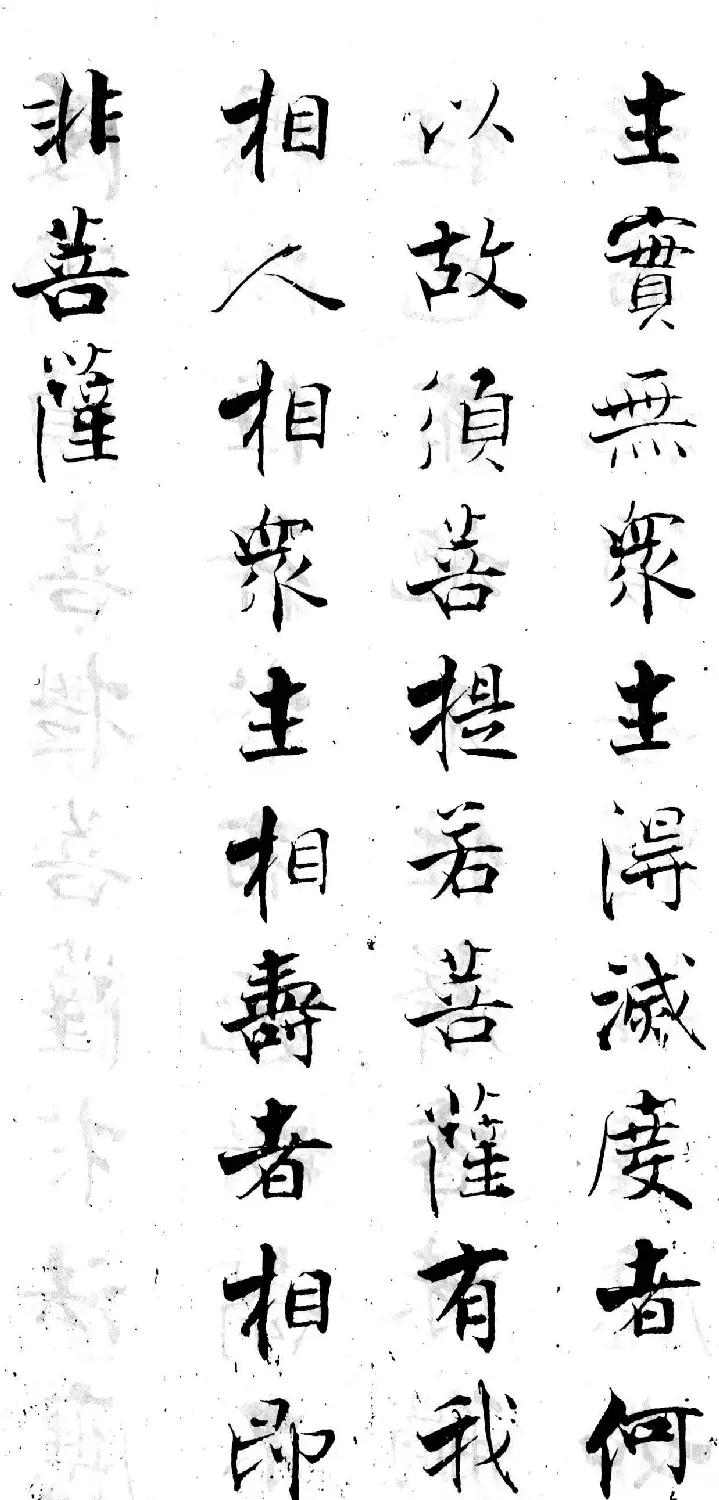 生實無眾生得滅度者何
以故須菩提若菩薩有我
相人相眾生相壽者相即
非菩薩